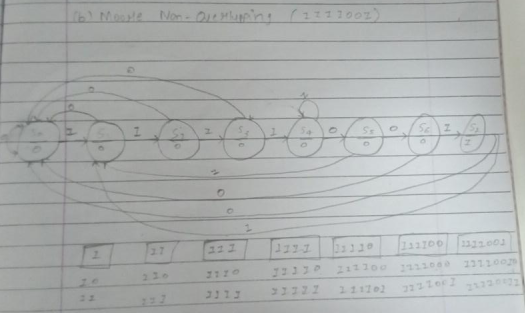 (b) Moore Non-Overlapping (1111001)
0
0
0
1
S0 1 S1 1 S2 1 S3 1 S4 0 S5 0 S6 1 S7
0 0 0 0 0 0 0 1
1
0
0
1
1 11 111 1111 11110 111100 1111001
10 110 1110 11110 111100 1111000 11110010
11 111 1111 11111 111101 1111001 11110011